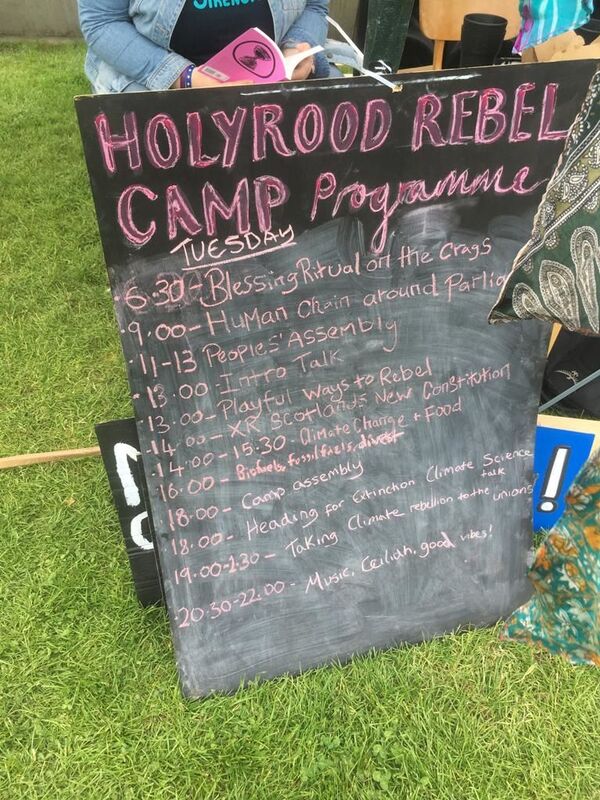 STRENG
HOLYROOD REBEL
CAMP Programme
TUESDAY
6.30 - Blessing Ritual on the Crags
9.00 - Human Chain around Parlia
11-13 Peoples' Assembly
13.00 - Intro Talk
13.00 - Playful Ways to Rebel
14.00 - XR Scotlands New Constitution
14.00 - 15:30 Climate Change + Food
16.00 - Biofuels, fossil fuels, divest
18.00 - Camp assembly
18.00 - Heading for Extinction Climate Science talk
19.00 - 2.30 - Taking Climate rebellion to the unions
20.30-22.00 - Music, Ceilidh, good vibes!
!